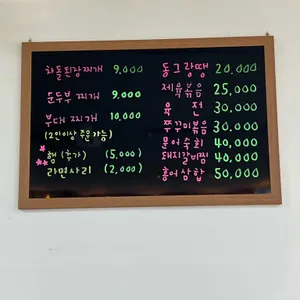 차돌된장찌개 9,000
순두부 찌개 9,000
부대 찌개 10,000
(2인이상 주문가능)
햄 (추가) (5,000)
라면사리 (2,000)
동그랑땡 20,000
제육볶음 25,000
육전 30,000
쭈꾸미볶음 30,000
문어숙회 40,000
돼지갈비찜 40,000
홍어삼합 50,000